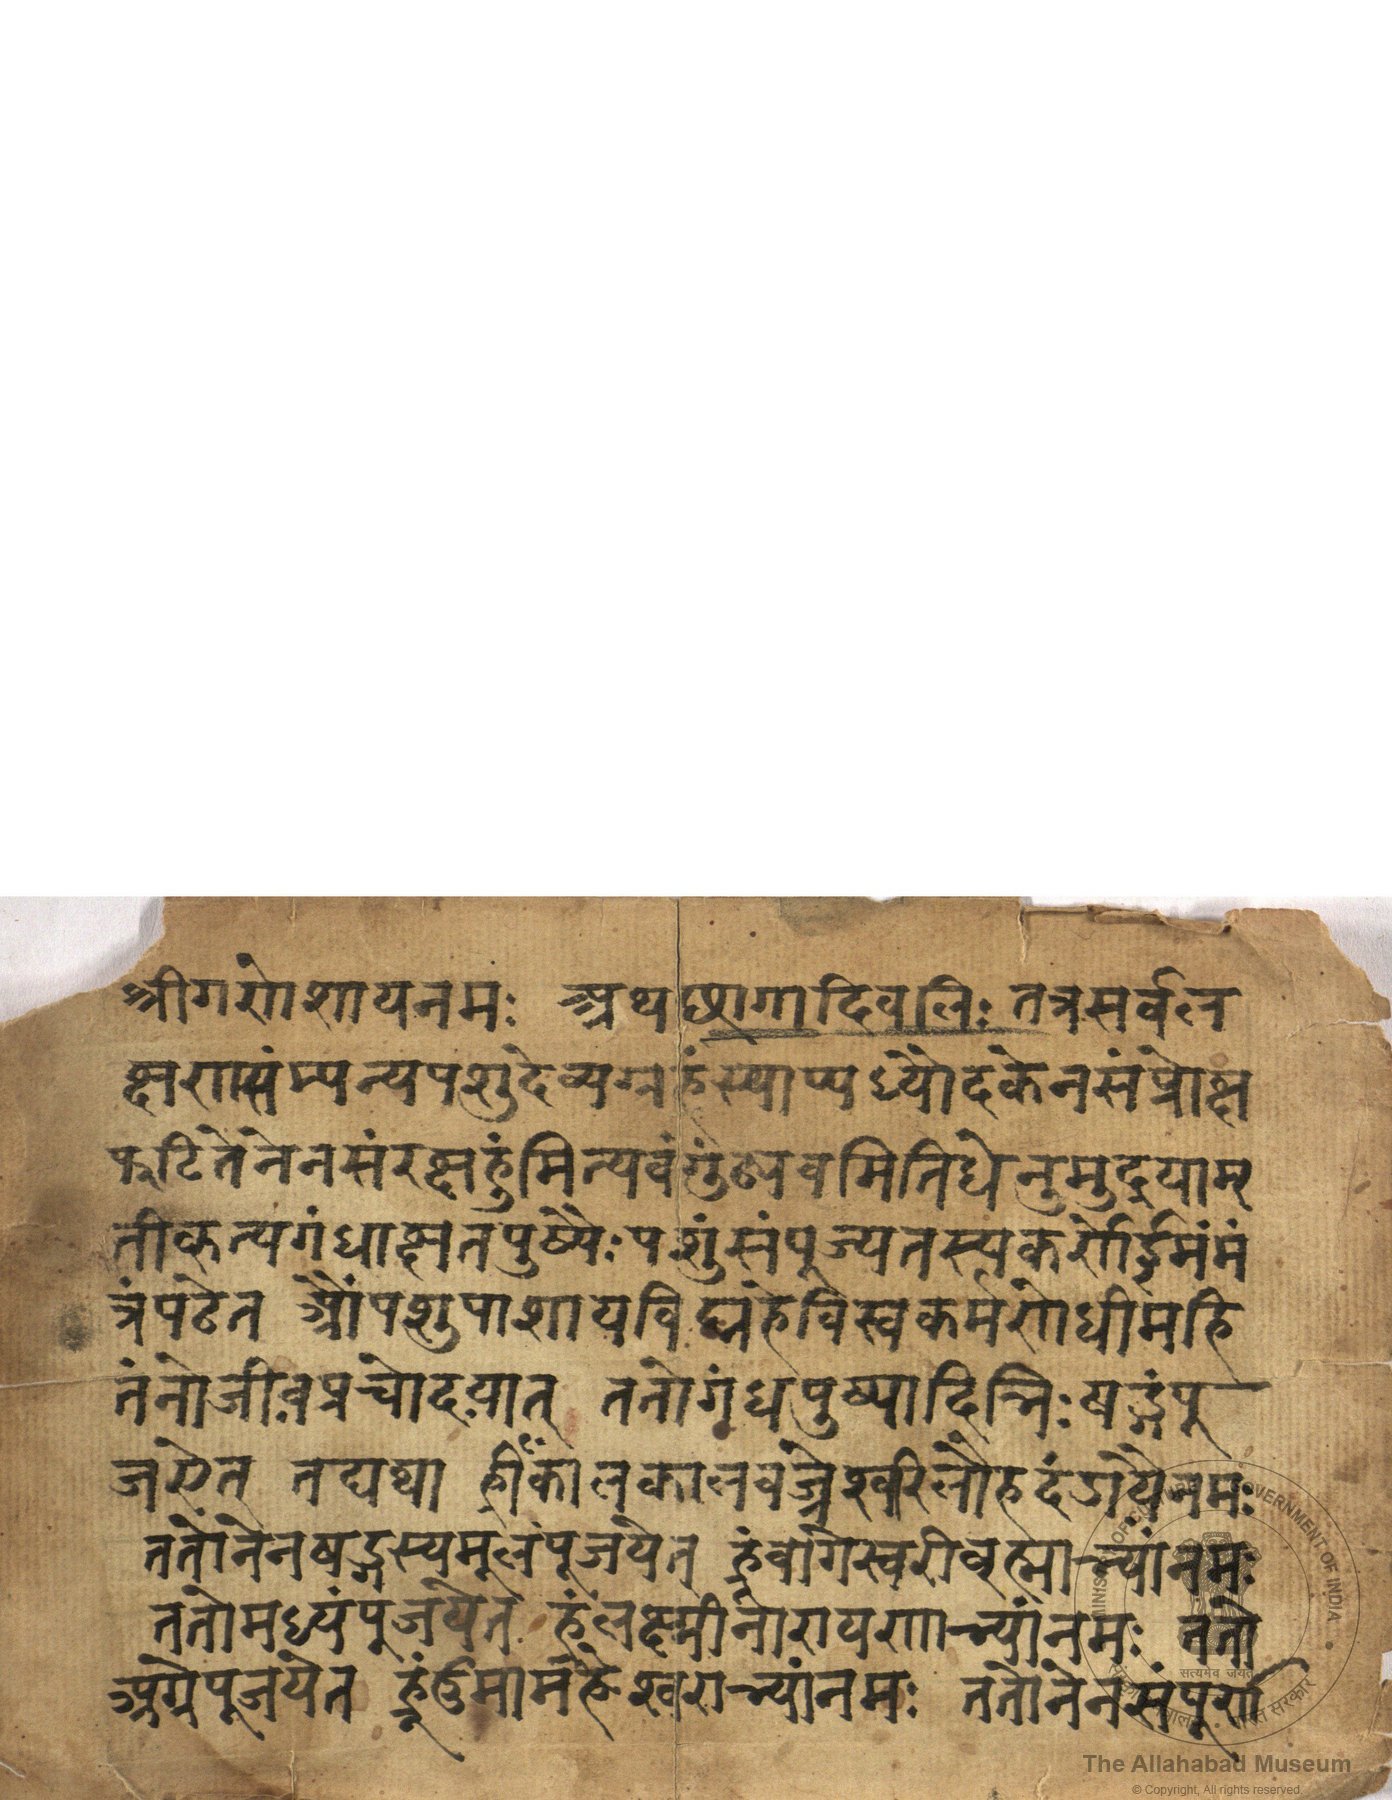 श्रीगणेशायनमः अथछागादिवलिः तत्रसर्वल
क्षणसंम्पन्यपशुदेव्यग्न स्थाप्यअर्घ्योदकेनसंप्रोक्ष
फटितेनेनसंरक्षहुंमित्यवंगुंठ्यवमितिधेनुमुद्रयाम्
तीकृत्यगंधाक्षतपुष्पैः पशुंसंपूज्यतस्यकर्णेईमंमं
त्रंपठेत ओंपशुपाशायविद्महेविस्वकर्मणेधीमहि
तंनोजीवप्रचोदयात् ततोगंधपुष्पादिभिः षड्गंपू
जएत् तद्यथा ह्रींकालकालवज्रेश्वरिलौहदंडायैनमः
ततोनेनषड्गस्यमूलंपूजयेत हूंवागेस्वरीवृह्माभ्यांनमः
ततोमध्यंपूजयेत हूंलक्ष्मीनारायणाभ्यांनमः ततो
अग्रेपूजयेत हूंउमामहेश्वराभ्यांनमः ततोनेनसंपूर्ण
सत्यमेव जयते
GOVERNMENT OF INDIA
भारत सरकार
The Allahabad Museum
© Copyright, All rights reserved.